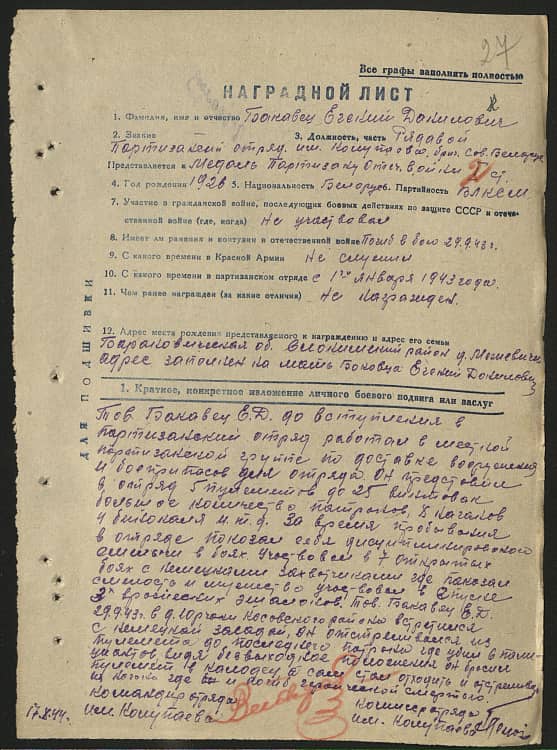 27
Все графы заполнить полностью
НАГРАДНОЙ ЛИСТ
1. Фамилия, имя и отчество Бакавец Евгений Данилович
2. Звание 3. Должность, часть Рядовой
Партизанский отряд им. Комутаева, бриг. Сов. Беларусь
Представляется к Медаль Партизану Отеч. войны ст.
4. Год рождения 1926 5. Национальность Белорус 6. Партийность ВЛКСМ
7. Участие в гражданской войне, последующих боевых действиях по защите СССР и отече-
ственной войне (где, когда) Не участвовал
8. Имеет ли ранения и контузии в отечественной войне Погиб в бою 29.9.43 г.
9. С какого времени в Красной Армии Не служил
10. С какого времени в партизанском отряде с 1го января 1943 года.
11. Чем ранее награжден (за какие отличия) Не награжден.
12. Адрес места рождения представляемого к награждению и адрес его семьи
Барановичская об. район д.
адрес заполнен на мать Евгений Данилович
ДЛЯ ПОДШИВКИ
1. Краткое, конкретное изложение личного боевого подвига или заслуг
Тов. Бакавец Е.Д. до вступления в
партизанский отряд работал в местной
партизанской группе по доставке вооружения
и боеприпасов для отряда. Он представил
в отряд 5 пулеметов до 25 винтовок
большое количество патронов, 8 наганов
4 бинокаля и т.д. За время пребывания
в отряде показал себя дисциплинированым
в боях. Участвовал в 7 открытых
боях с немецкими захватчиками где показал
смелость и мужество участвовал в спуске
3х вражеских эшалонов. Тов. Бакавец Е.Д.
29.9.43 г. в д. Юрчаки Косовского района встретился
с немецкой засадой, он отстреливался из
пулемета до последнего патрона где убил 2
видя безвыходное положения он бросил
пулемет в калодец а сам стал отходить и
из нагана где и погиб героической смертю.
Командир отряда Комиссар отряда
им. Комутаева им. Комутаева
17.X.44.